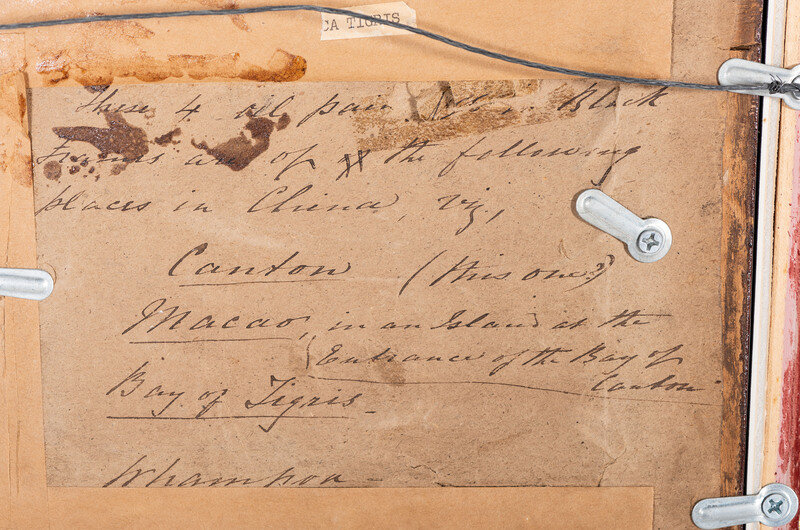 CA TIGRIS
These 4 oil pain in Black
Frames are of the following
places in China, viz,
Canton (this one?)
Macao, in an Island at the
Entrance of the Bay of
Canton
Bay of Tigris -
Whampoa -